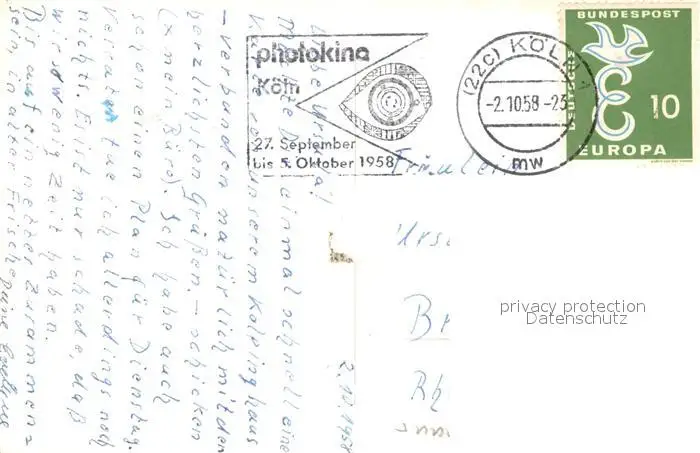 photokina
Köln
27. September
bis 5. Oktober 1958
(22c) KÖLN 1
-2.10.58 -23
mw
BUNDESPOST
DEUTSCHE
10
EUROPA
Fräulein
Urs
B
Rh
privacy protection
Datenschutz
2.10.1958
Liebe Ursula!
Möchte D einmal schnell eine
Karte von unserem Kolpinghaus
- verbunden natürlich mit den
herzlichsten Grüßen - schicken
(x mein Büro). Ich habe auch
schon einen Plan für Dienstag.
Verraten tue ich allerdings noch
nichts. Es ist nur schade, daß
wir so wenig Zeit haben.
Bis auf ein nettes Zusammen=
sein in alter Frische